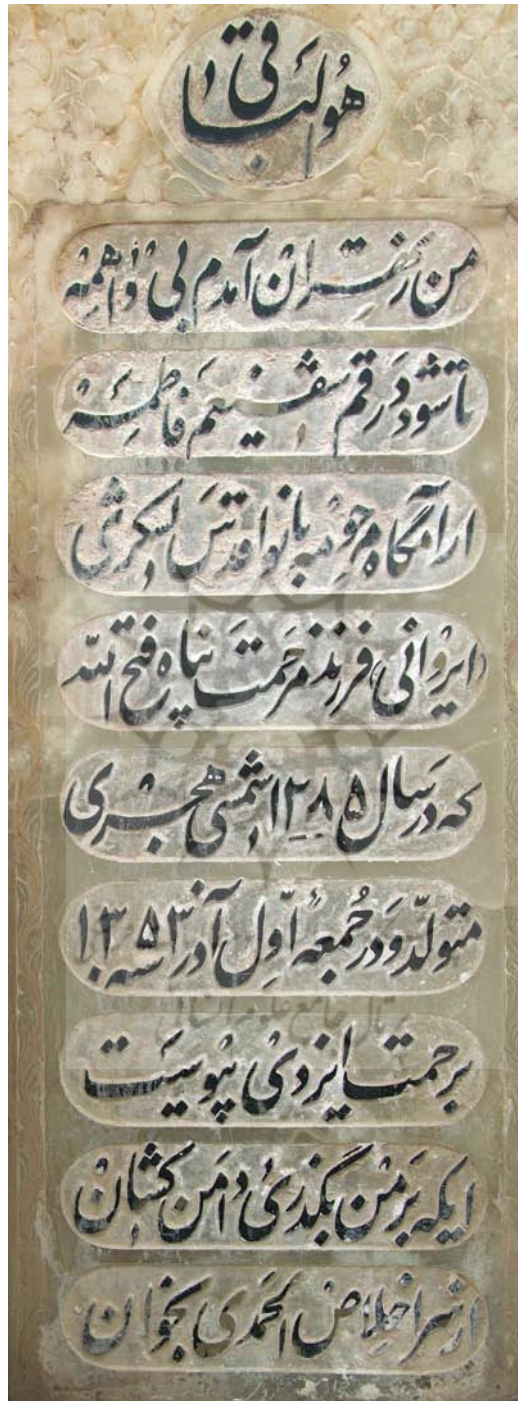 هو الباقی
من ز تهران آمدم بی واهمه
تا شود در قم شفیعم فاطمه
آرامگاه مرحومه بانو اقدس لشکری
(ایروانی) فرزند مرحمت پناه فتح الله
که در سال ۱۲۸۵ شمسی هجری
متولّد و در جُمعه اوّل آذر سنه ۱۳۵۳
برحمت ایزدی پیوست
ایکه بر من بگذری دامن کشان
از سر اخلاص الحمدی بخوان
پرتال جامع علوم انسانی